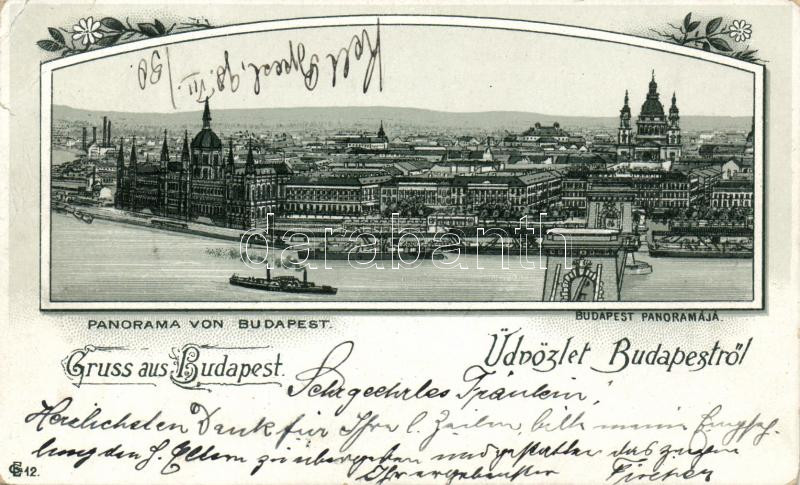 Kelt Bpest, 98 VII/30.
PANORAMA VON BUDAPEST.
BUDAPEST PANORAMÁJA.
Gruss aus Budapest.
Üdvözlet Budapestről
Sehrgeehrtes Fräulein!
Herzlichsten Dank für Ihre l. Zeilen, bitte meine Empfeh-
lung den H. Eltern zu übergeben und gestatten das zu
Ihr ergebenster
12.
darabanth